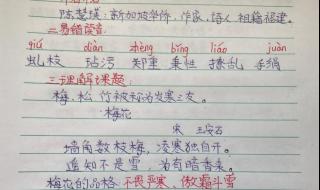 陈慧瑛：新加坡华侨，作家，诗人 祖籍福建。
二.易错读音：
qiú diàn zhèng bǐng liáo juàn
虬枝 玷污 郑重 秉性 撩乱 手绢
三.理解课题：
梅、松、竹被称为岁寒三友。
梅花
宋 王安石
墙角数枝梅，凌寒独自开。
遥知不是雪，为有暗香来。
梅花的品格：不畏严寒、傲霜斗雪